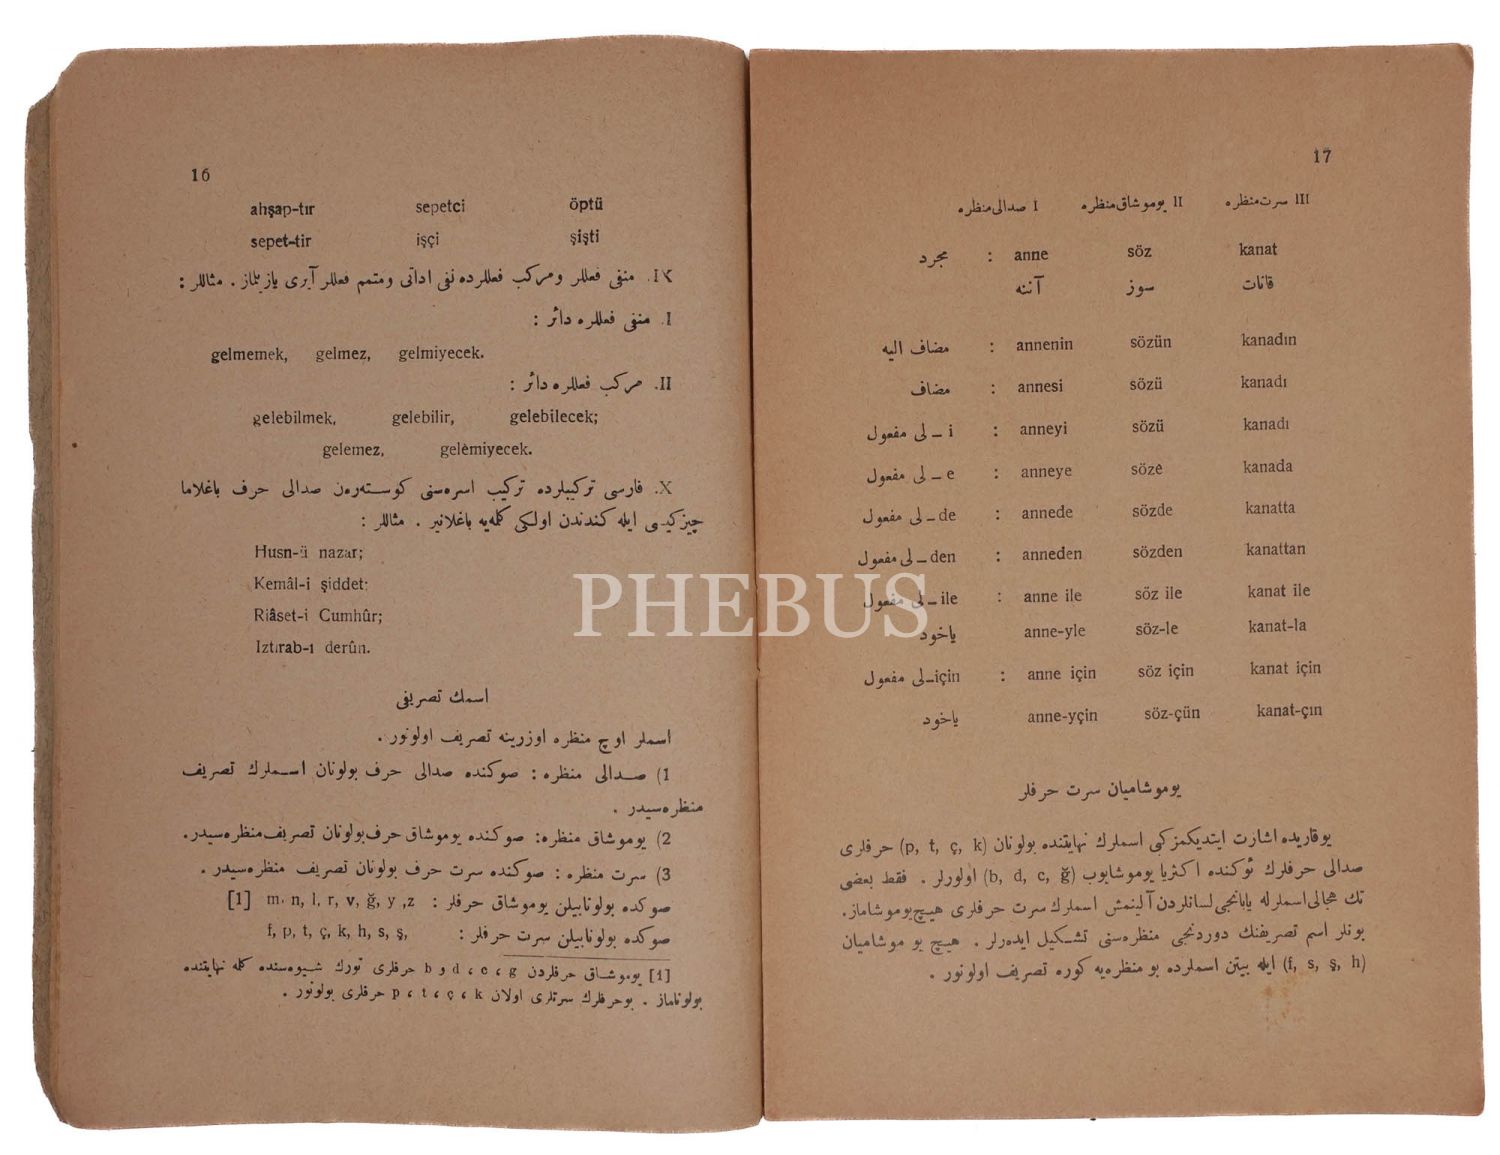 16
ahşap-tır sepetci öptü
sepet-tir işçi şişti
IX. منفی فعللر و مركب فعللرده نفی اداتی و متمم فعللر آیری یازیلماز . مثاللر :
I. منفی فعللره دائر :
gelmemek, gelmez, gelmiyecek.
II. مركب فعللره دائر :
gelebilmek, gelebilir, gelebilecek;
gelemez, gelemiyecek.
X. فارسی تركیبلرده تركیب اسره‌سنی كوسته‌رەن صدالی حرف باغلاما
چیزكیسی ایله كندندن اولكی كلمه‌یه باغلانیر . مثاللر :
Husn-ü nazar;
Kemâl-i şiddet;
Riâset-i Cumhûr;
Iztırab-ı derûn.
اسمك تصریفی
اسملر اوچ منظره اوزرینه تصریف اولونور .
1) صدالی منظره : صوكنده صدالی حرف بولونان اسملرك تصریف
منظره‌سیدر .
2) یوموشاق منظره: صوكنده یوموشاق حرف بولونان تصریف منظره‌سیدر.
3) سرت منظره : صوكنده سرت حرف بولونان تصریف منظره‌سیدر .
صوكده بولونابیلن یوموشاق حرفلر : m, n, l, r, v, ğ, y ,z [1]
صوكده بولونابیلن سرت حرفلر : f, p, t, ç, k, h, s, ş,
[1] یوموشاق حرفلردن b و d ، c ، g حرفلری تورك شیوه‌سنده كلمه نهایتنده
بولوناماز . بوحرفلرك سرتلری اولان p ، t ، ç ، k حرفلری بولونور .
17
III سرت منظره II یوموشاق منظره I صدالی منظره
مجرد : anne söz kanat
آننه سوز قانات
مضاف الیه : annenin sözün kanadın
مضاف : annesi sözü kanadı
i ـ لی مفعول : anneyi sözü kanadı
e ـ لی مفعول : anneye söze kanada
de ـ لی مفعول : annede sözde kanatta
den ـ لی مفعول : anneden sözden kanattan
ile ـ لی مفعول : anne ile söz ile kanat ile
یاخود anne-yle söz-le kanat-la
için ـ لی مفعول : anne için söz için kanat için
یاخود anne-yçin söz-çün kanat-çın
یوموشامیان سرت حرفلر
یوقاریده اشارت ایتدیكمز كبی اسملرك نهایتنده بولونان (p, t, ç, k) حرفلری
صدالی حرفلرك ئوكنده اكثریا یوموشایوب (b, d, c, ğ) اولورلر . فقط بعضی
تك هجالی اسملرله یابانجی لسانلردن آلینمش اسملرك سرت حرفلری هیچ یوموشاماز.
بونلر اسم تصریفنك دوردنجی منظره‌سنی تشكیل ایدەرلر . هیچ یوموشامیان
(f, s, ş, h) ایله بیتن اسملرده بو منظره‌یه كوره تصریف اولونور .
PHEBUS